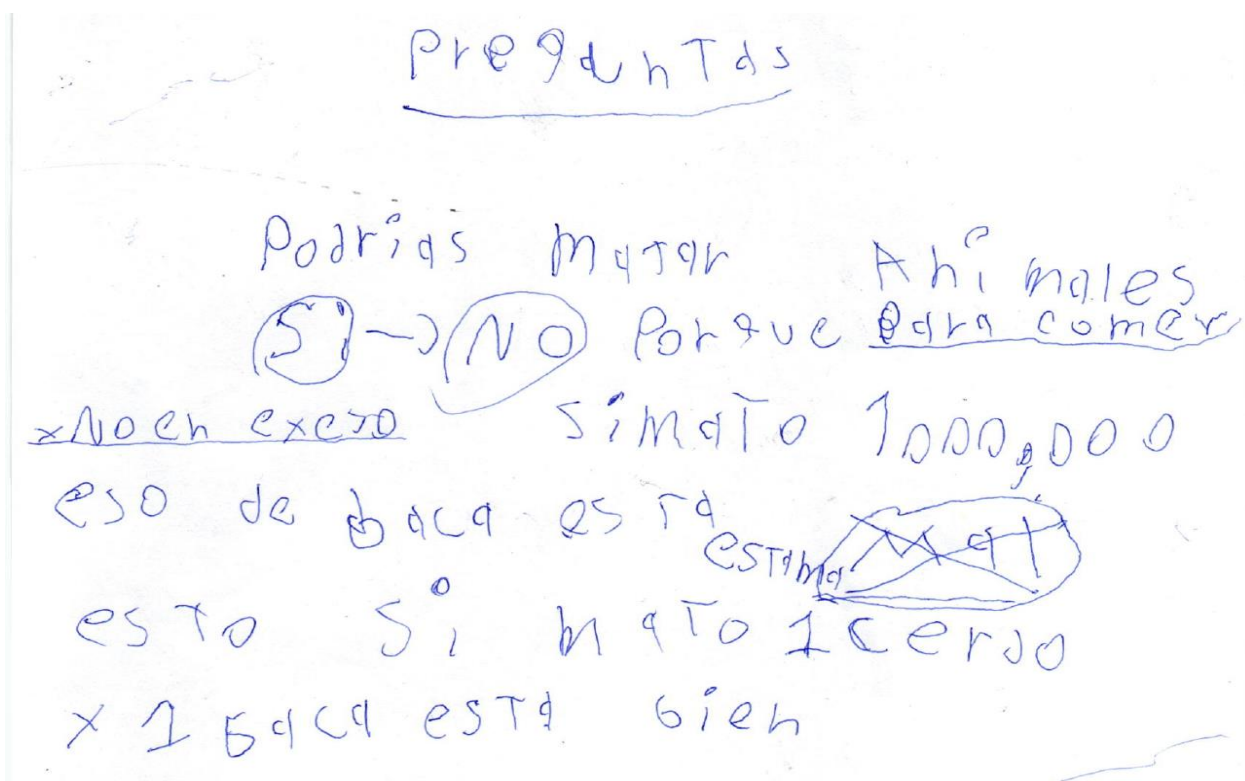 Preguntas
Podrias matar Animales
Si → NO Porque para comer
x No en exeso si mato 1000,000
eso de baca esta
esto si mato 1 cerdo
x 1 baca esta bien